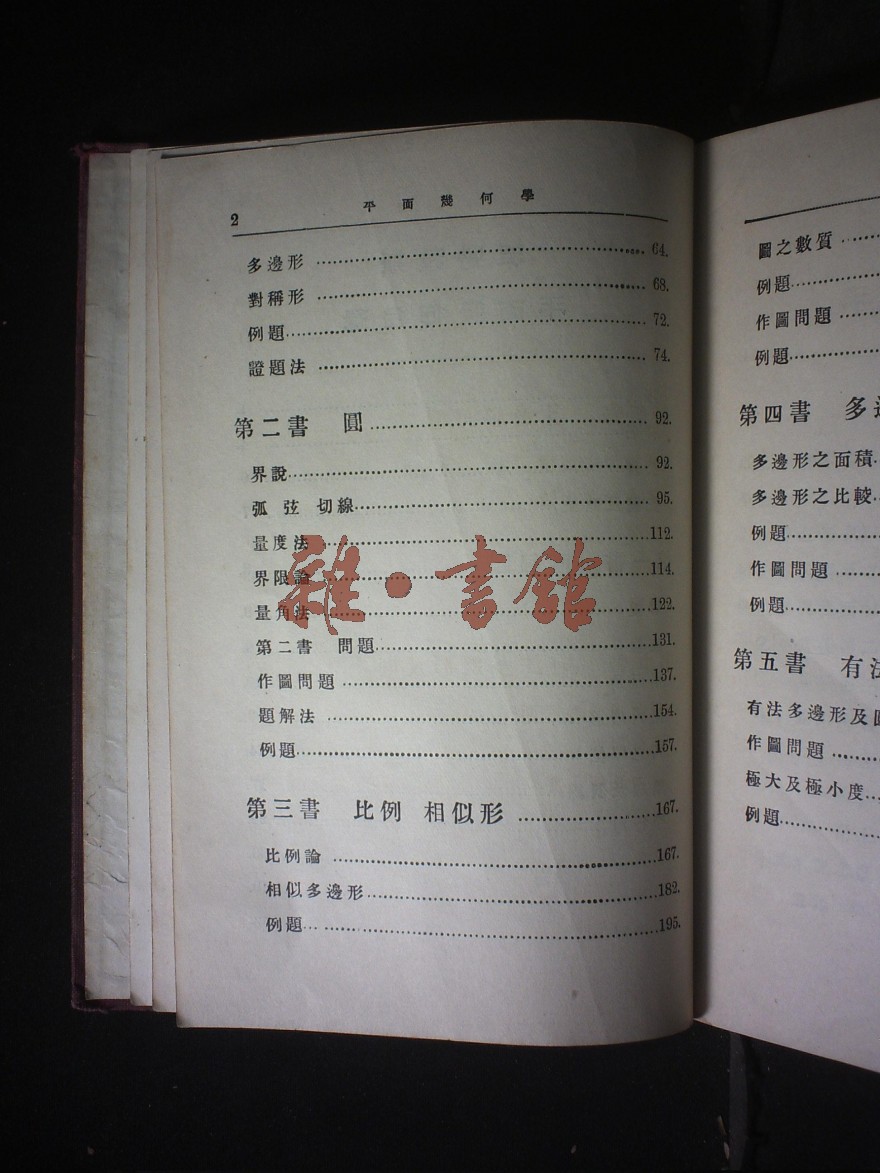 2 平面幾何學
多邊形 64.
對稱形 68.
例題 72.
證題法 74.
第二書 圓 92.
界說 92.
弧 弦 切線 95.
量度法 112.
界限論 114.
量角法 122.
第二書 問題 131.
作圖問題 137.
題解法 154.
例題 157.
第三書 比例 相似形 167.
比例論 167.
相似多邊形 182.
例題 195.
雜·書館
圖之數質
例題
作圖問題
例題
第四書 多
多邊形之面積
多邊形之比較
例題
作圖問題
例題
第五書 有法
有法多邊形及
作圖問題
極大及極小度
例題